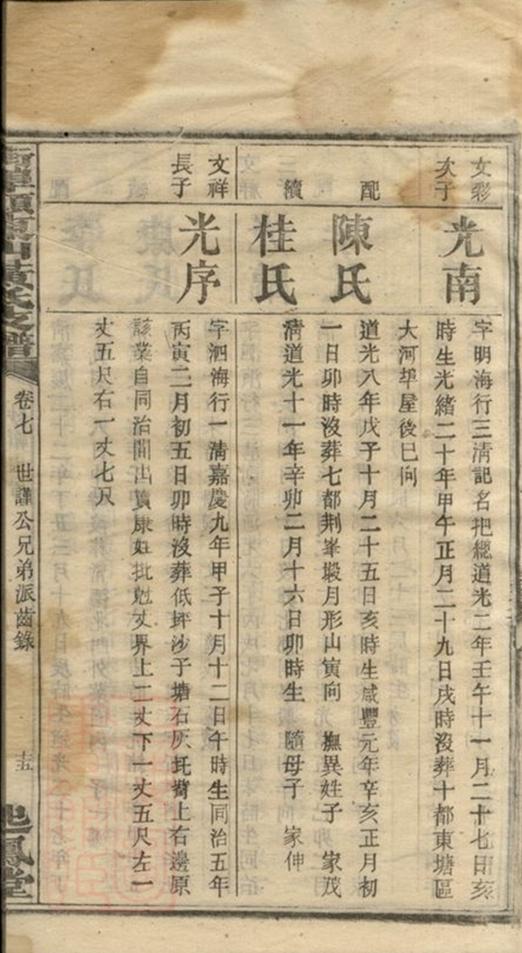 文彩
次子
光南
字明海行三清記名把總道光二年壬午十一月二十七日亥
時生光緒二十年甲午正月二十九日戌時沒葬十都東塘區
大河㘰屋後巳向
配
陳氏
道光八年戊子十月二十五日亥時生咸豐元年辛亥正月初
一日卯時沒葬七都荆峯塅月形山寅向 撫異姓子 家茂
續
桂氏
清道光十一年辛卯二月十六日卯時生 隨母子 家伸
文祥
長子
光序
字泗海行一清嘉慶九年甲子十月十二日午時生同治五年
丙寅二月初五日卯時沒葬低坪沙子塘石灰坵墈上右邊原
該業自同治間出賣康姓批尅丈界上二丈下一丈五尺左一
丈五尺右一丈七尺
黃氏支譜
卷七
世謹公兄弟派齒錄
十五
鳳堂